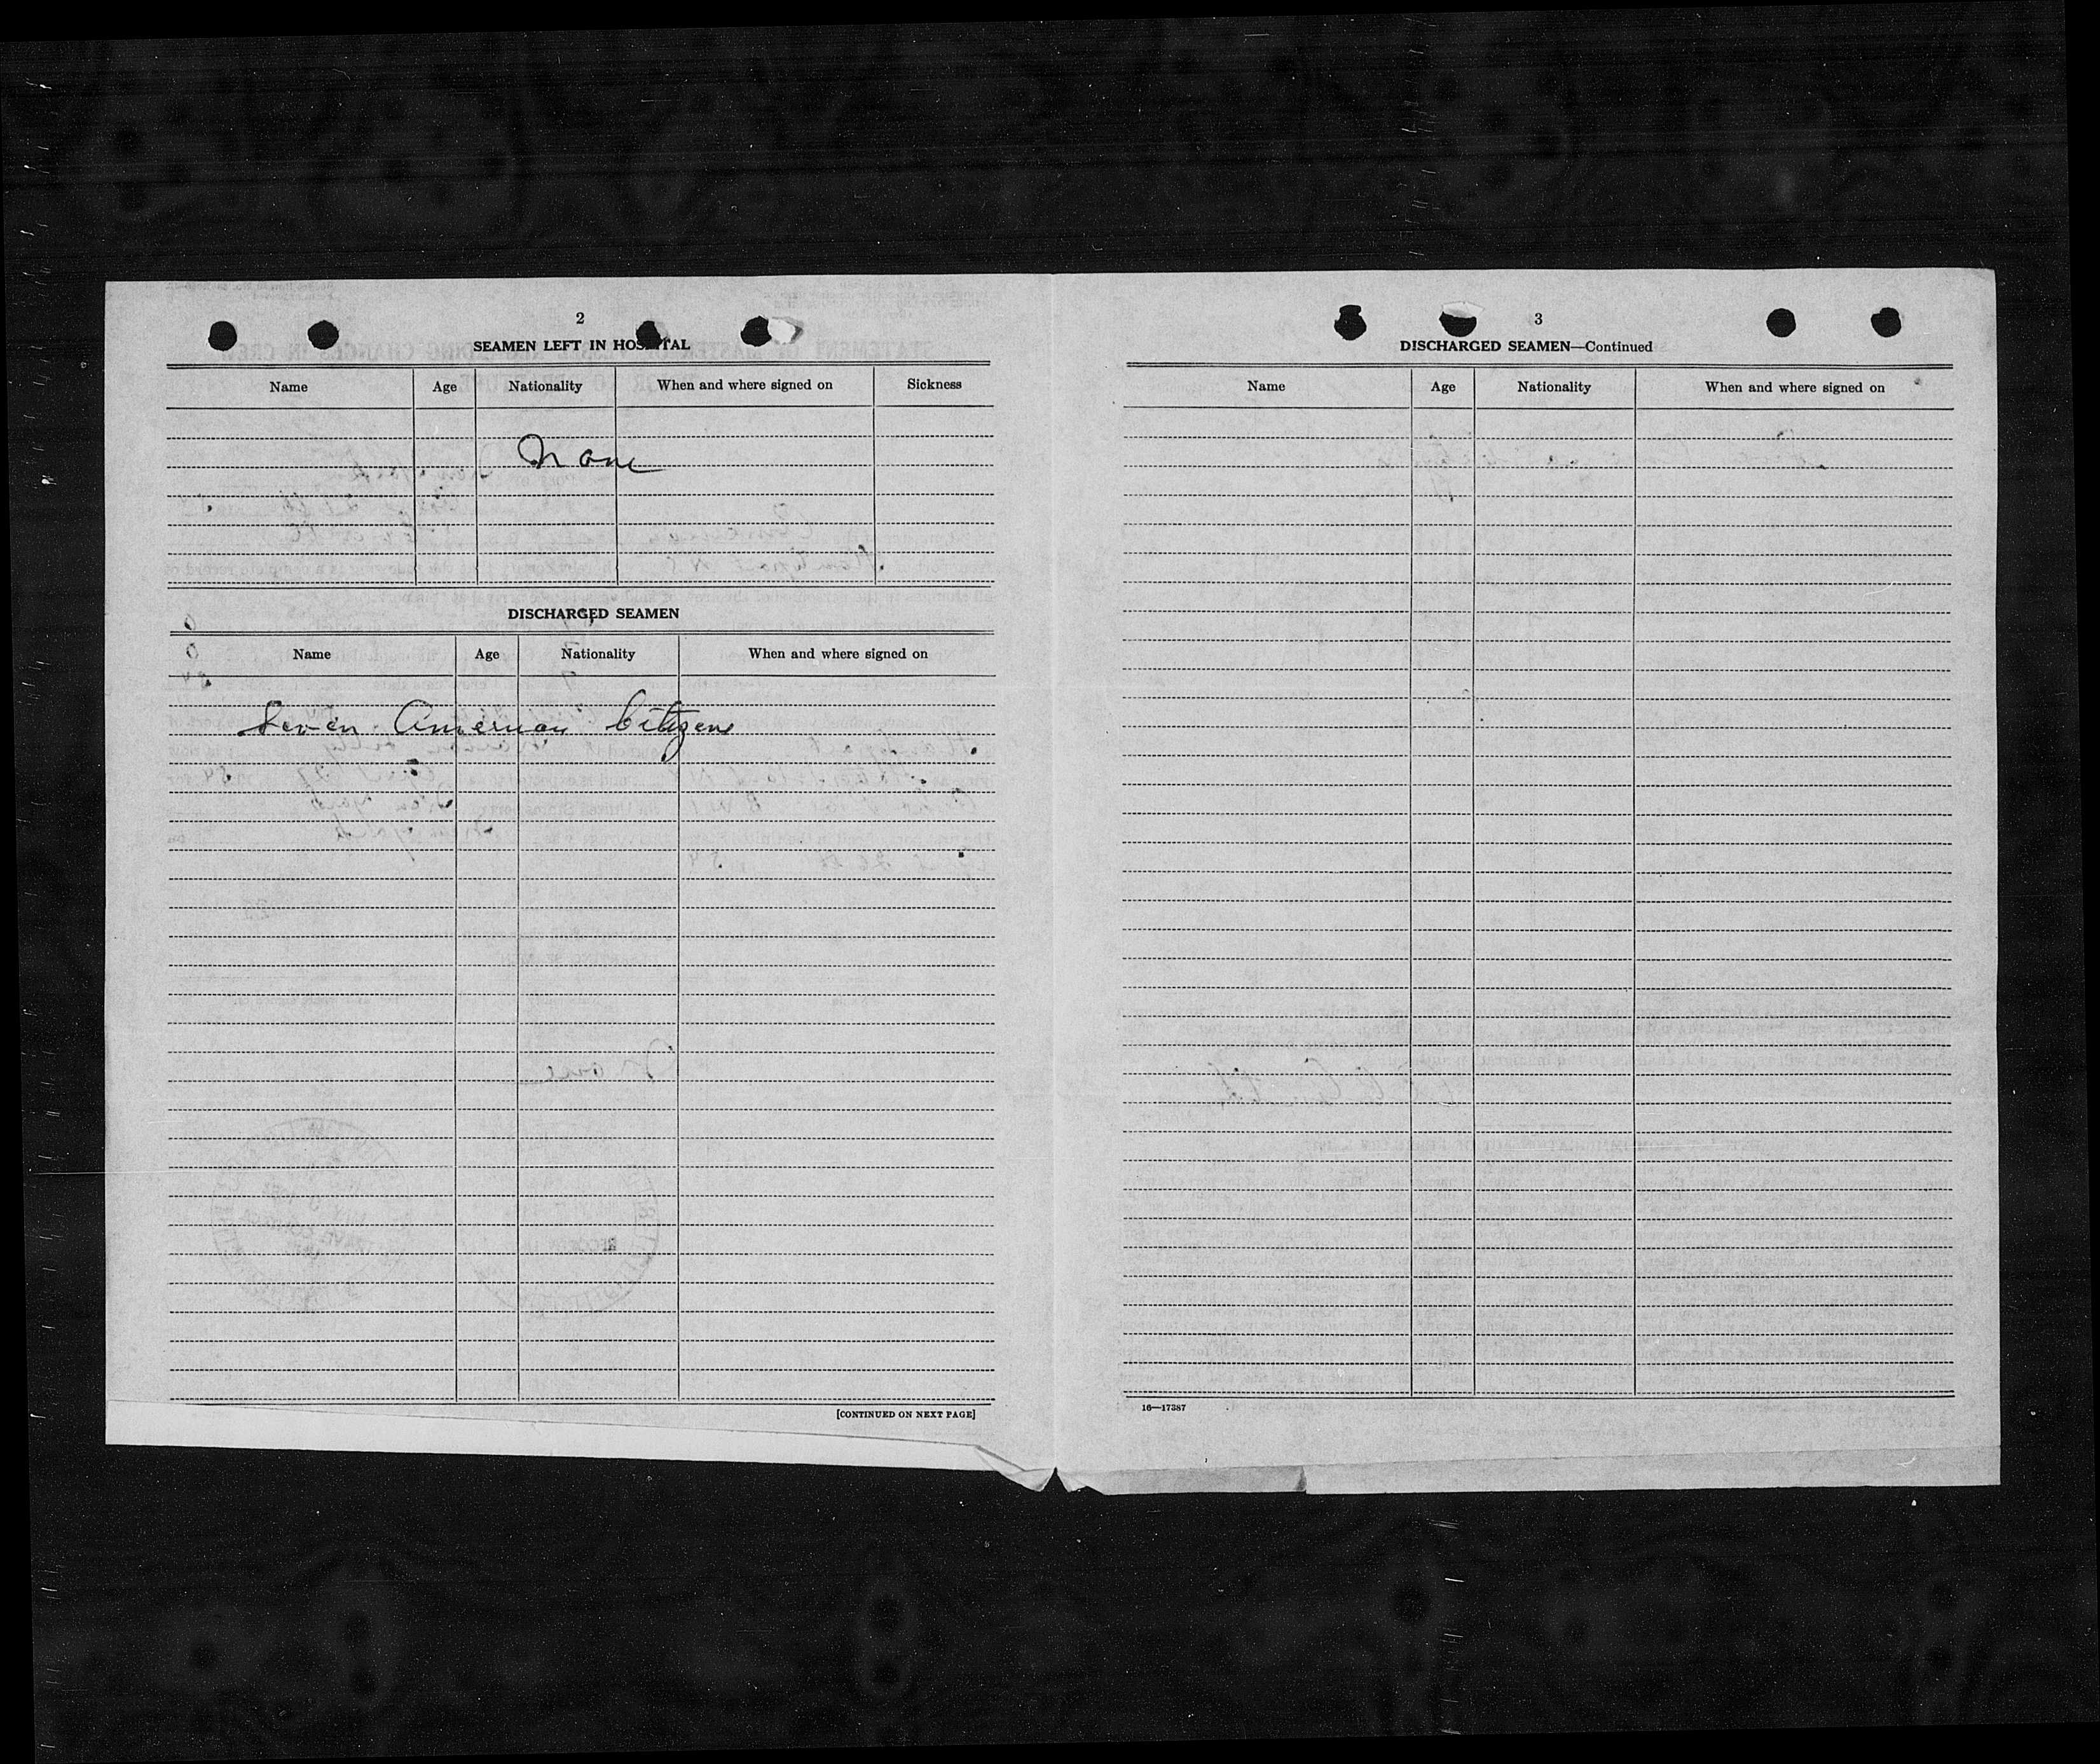 2
SEAMEN LEFT IN HOSPITAL
Name Age Nationality When and where signed on Sickness
None
DISCHARGED SEAMEN
Name Age Nationality When and where signed on
Seven American Citizens
[CONTINUED ON NEXT PAGE]
3
DISCHARGED SEAMEN—Continued
Name Age Nationality When and where signed on
16—17387